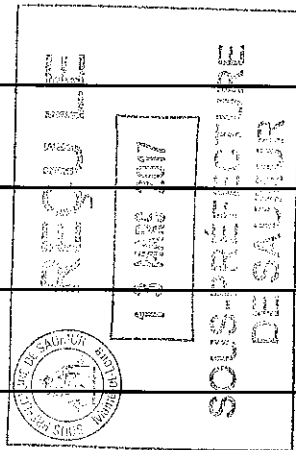 REÇU LE
MARS 2017
SOUS-PRÉFECTURE
DE SAUMUR
SOUS PREFECTURE DE SAUMUR